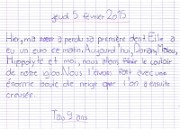 jeudi 5 février 2015
Hier, ma sœur a perdu sa première dent. Elle a
eu un euro ce matin. Aujourd'hui, Dorian, Malou,
Hippolyte et moi, nous avons fait le couloir
de notre igloo. Nous l'avons fait avec une
énorme boule de neige que l'on a ensuite
creusée.
9 ans